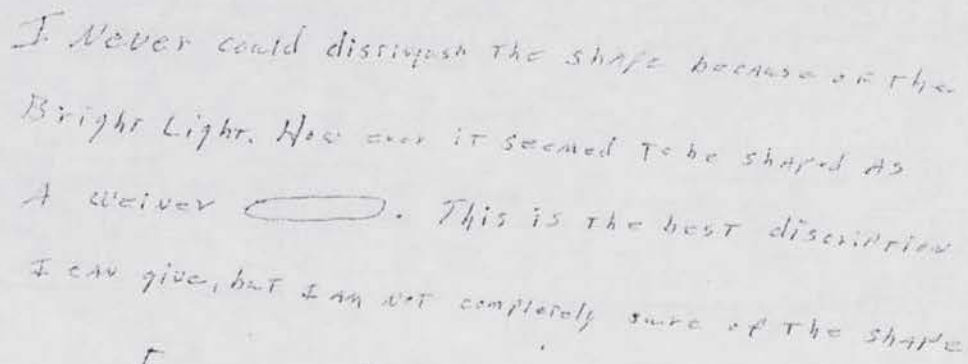 I Never could distinqush The shape because of the
Bright Light. How ever it seemed To be shaped As
A weiner . This is the best discription
I can give, but I am not completely sure of The shape